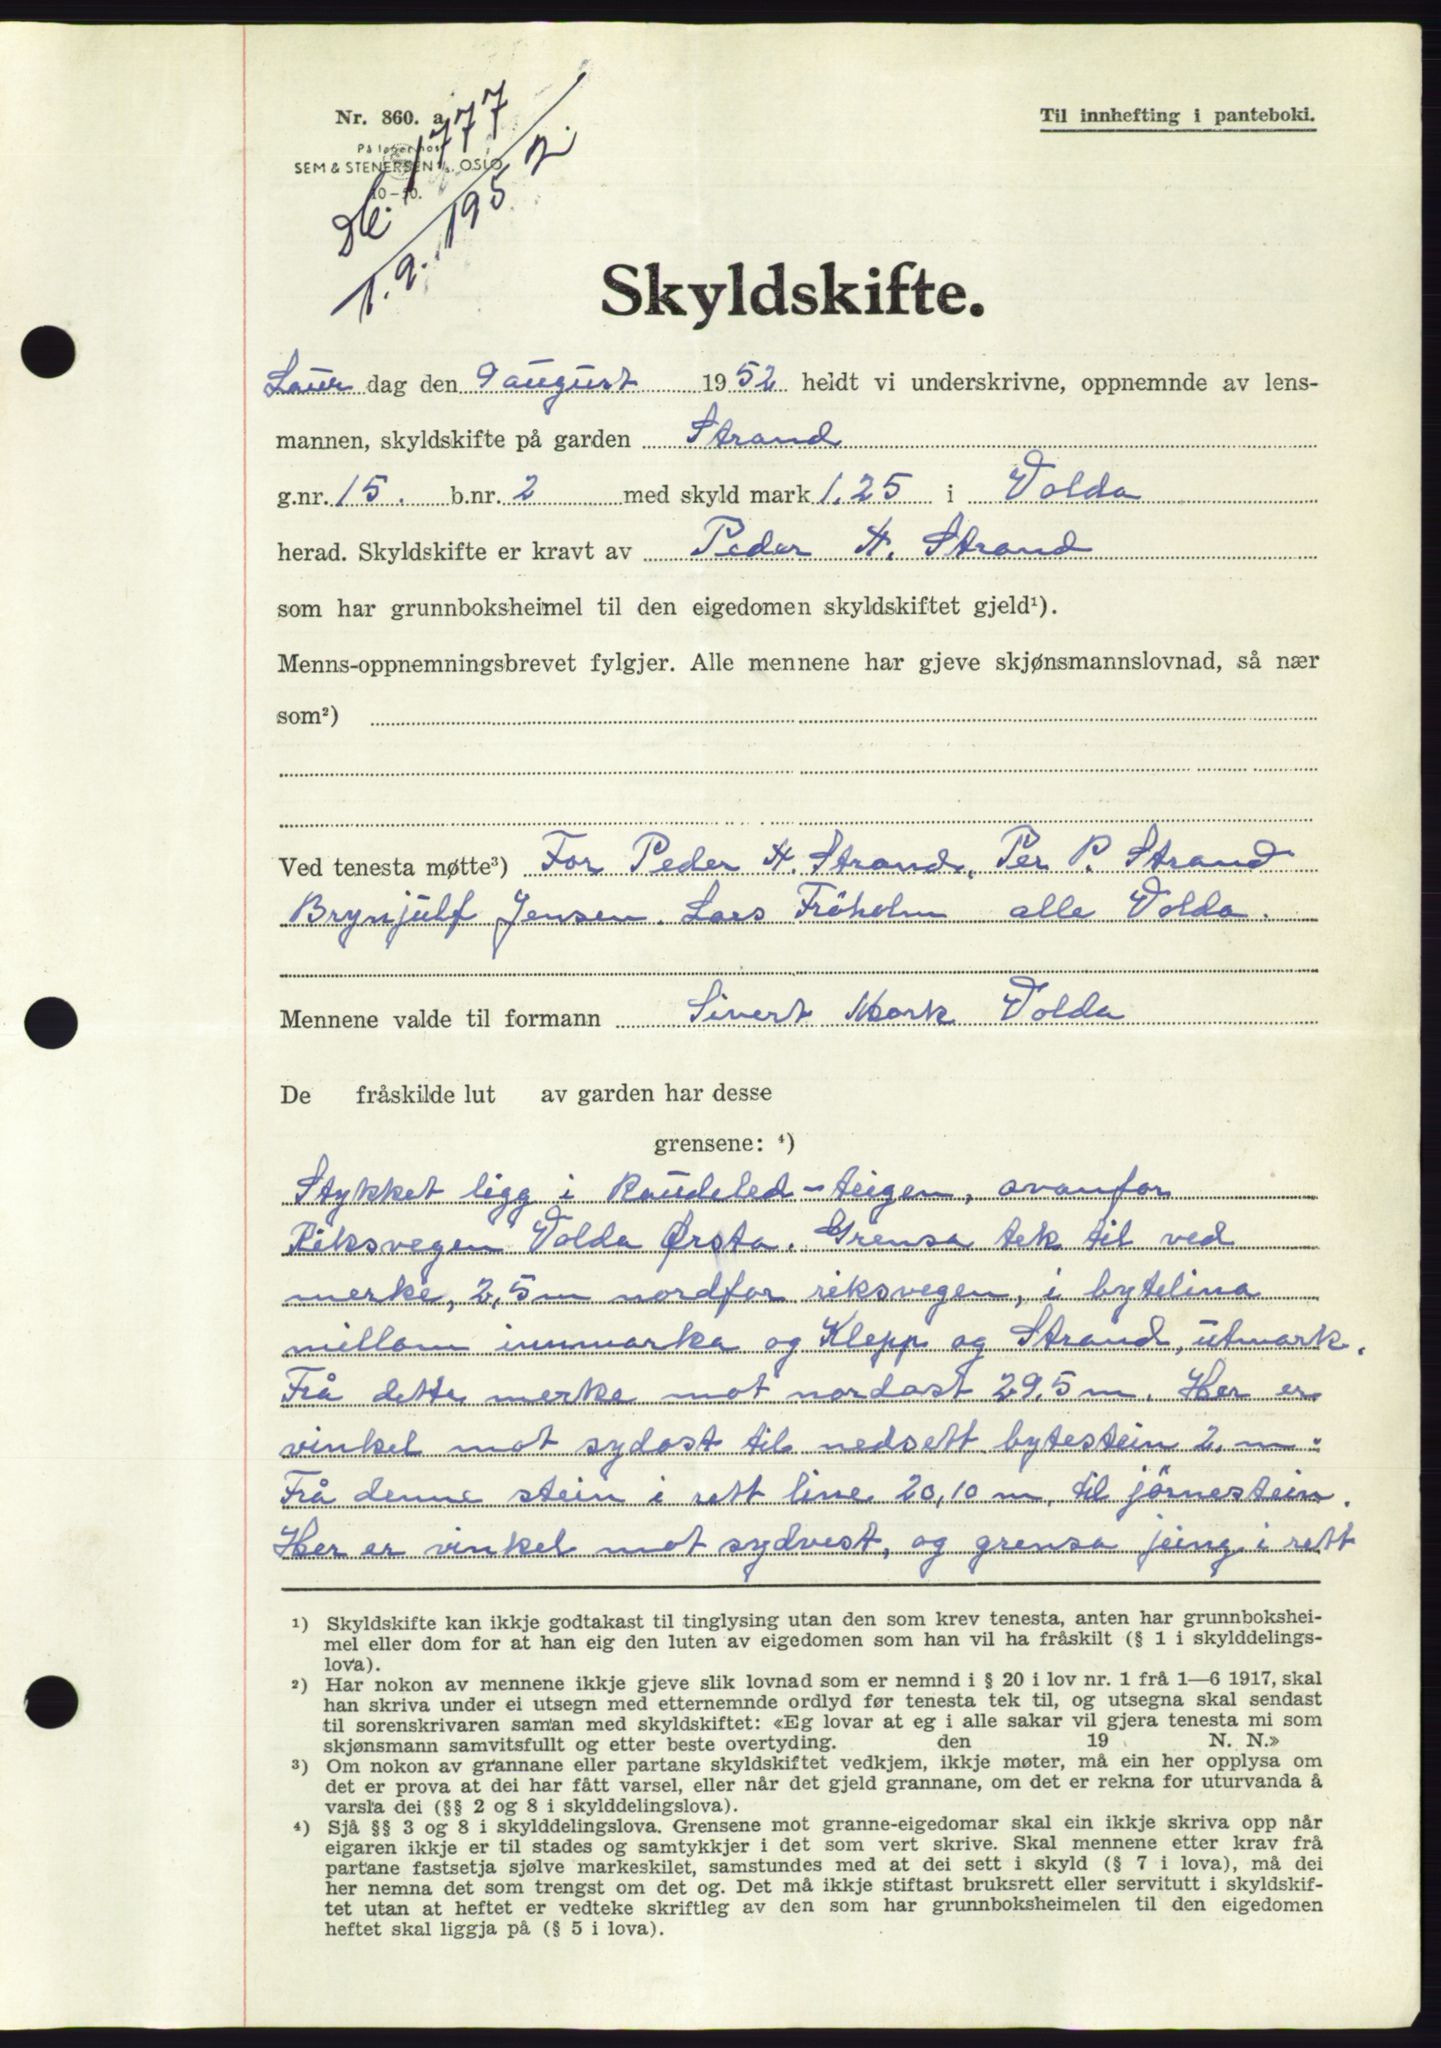 Nr. 860. a
Til innhefting i panteboki.
På lager hos
SEM & STENERSEN A/S. OSLO
10-50.
Db. 1777
1.9.1952.
Skyldskifte.
Laur dag den 9 august 1952 heldt vi underskrivne, oppnemnde av lens-
mannen, skyldskifte på garden Strand
g.nr. 15. b.nr. 2 med skyld mark 1,25 i Volda
herad. Skyldskifte er kravt av Peder H. Strand
som har grunnboksheimel til den eigedomen skyldskiftet gjeld¹).
Menns-oppnemningsbrevet fylgjer. Alle mennene har gjeve skjønsmannslovnad, så nær
som²)
Ved tenesta møtte³) For Peder H. Strand, Per P. Strand
Brynjulf Jensen. Lars Fröholm alle Volda.
Mennene valde til formann Sivert Mork Volda
De fråskilde lut av garden har desse
grensene: ⁴)
Stykket ligg i Raudeled-teigen, ovanfor
Riksvegen Volda Ørsta. Grensa tek til ved
merke, 2,5 m nordfor riksvegen, i bytelina
millom innmarka og Klepp og Strand, utmark.
Frå dette merke mot nordast 29.5 m. Her er
vinkel mot sydast til nedsett bytestein 2. m.
Frå denne stein i rett line 20,10 m. til jörnestein.
Her er vinkel mot sydvest, og grensa jeing i rett
¹) Skyldskifte kan ikkje godtakast til tinglysing utan den som krev tenesta, anten har grunnbokshei-
mel eller dom for at han eig den luten av eigedomen som han vil ha fråskilt (§ 1 i skylddelings-
lova).
²) Har nokon av mennene ikkje gjeve slik lovnad som er nemnd i § 20 i lov nr. 1 frå 1—6 1917, skal
han skriva under ei utsegn med etternemnde ordlyd før tenesta tek til, og utsegna skal sendast
til sorenskrivaren saman med skyldskiftet: «Eg lovar at eg i alle sakar vil gjera tenesta mi som
skjønsmann samvitsfullt og etter beste overtyding. den 19 N. N.»
³) Om nokon av grannane eller partane skyldskiftet vedkjem, ikkje møter, må ein her opplysa om
det er prova at dei har fått varsel, eller når det gjeld grannane, om det er rekna for uturvanda å
varsla dei (§§ 2 og 8 i skylddelingslova).
⁴) Sjå §§ 3 og 8 i skylddelingslova. Grensene mot granne-eigedomar skal ein ikkje skriva opp når
eigaren ikkje er til stades og samtykkjer i det som vert skrive. Skal mennene etter krav frå
partane fastsetja sjølve markeskilet, samstundes med at dei sett i skyld (§ 7 i lova), må dei
her nemna det som trengst om det og. Det må ikkje stiftast bruksrett eller servitutt i skyldskif-
tet utan at heftet er vedteke skriftleg av den som har grunnboksheimelen til den eigedomen
heftet skal liggja på (§ 5 i lova).